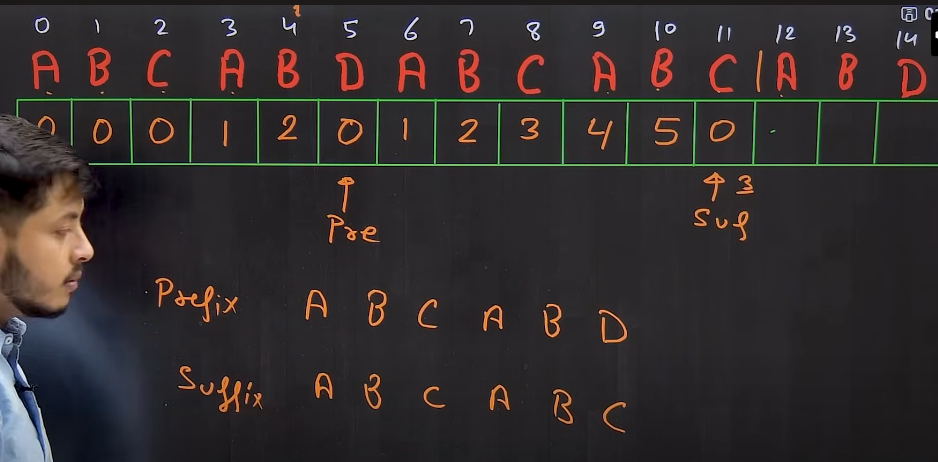 0 1 2 3 4 5 6 7 8 9 10 11 12 13 14
A B C A B D A B C A B C | A B D
0 0 0 1 2 0 1 2 3 4 5 0
↑ ↑ 3
Pre Suf
Prefix A B C A B D
Suffix A B C A B C